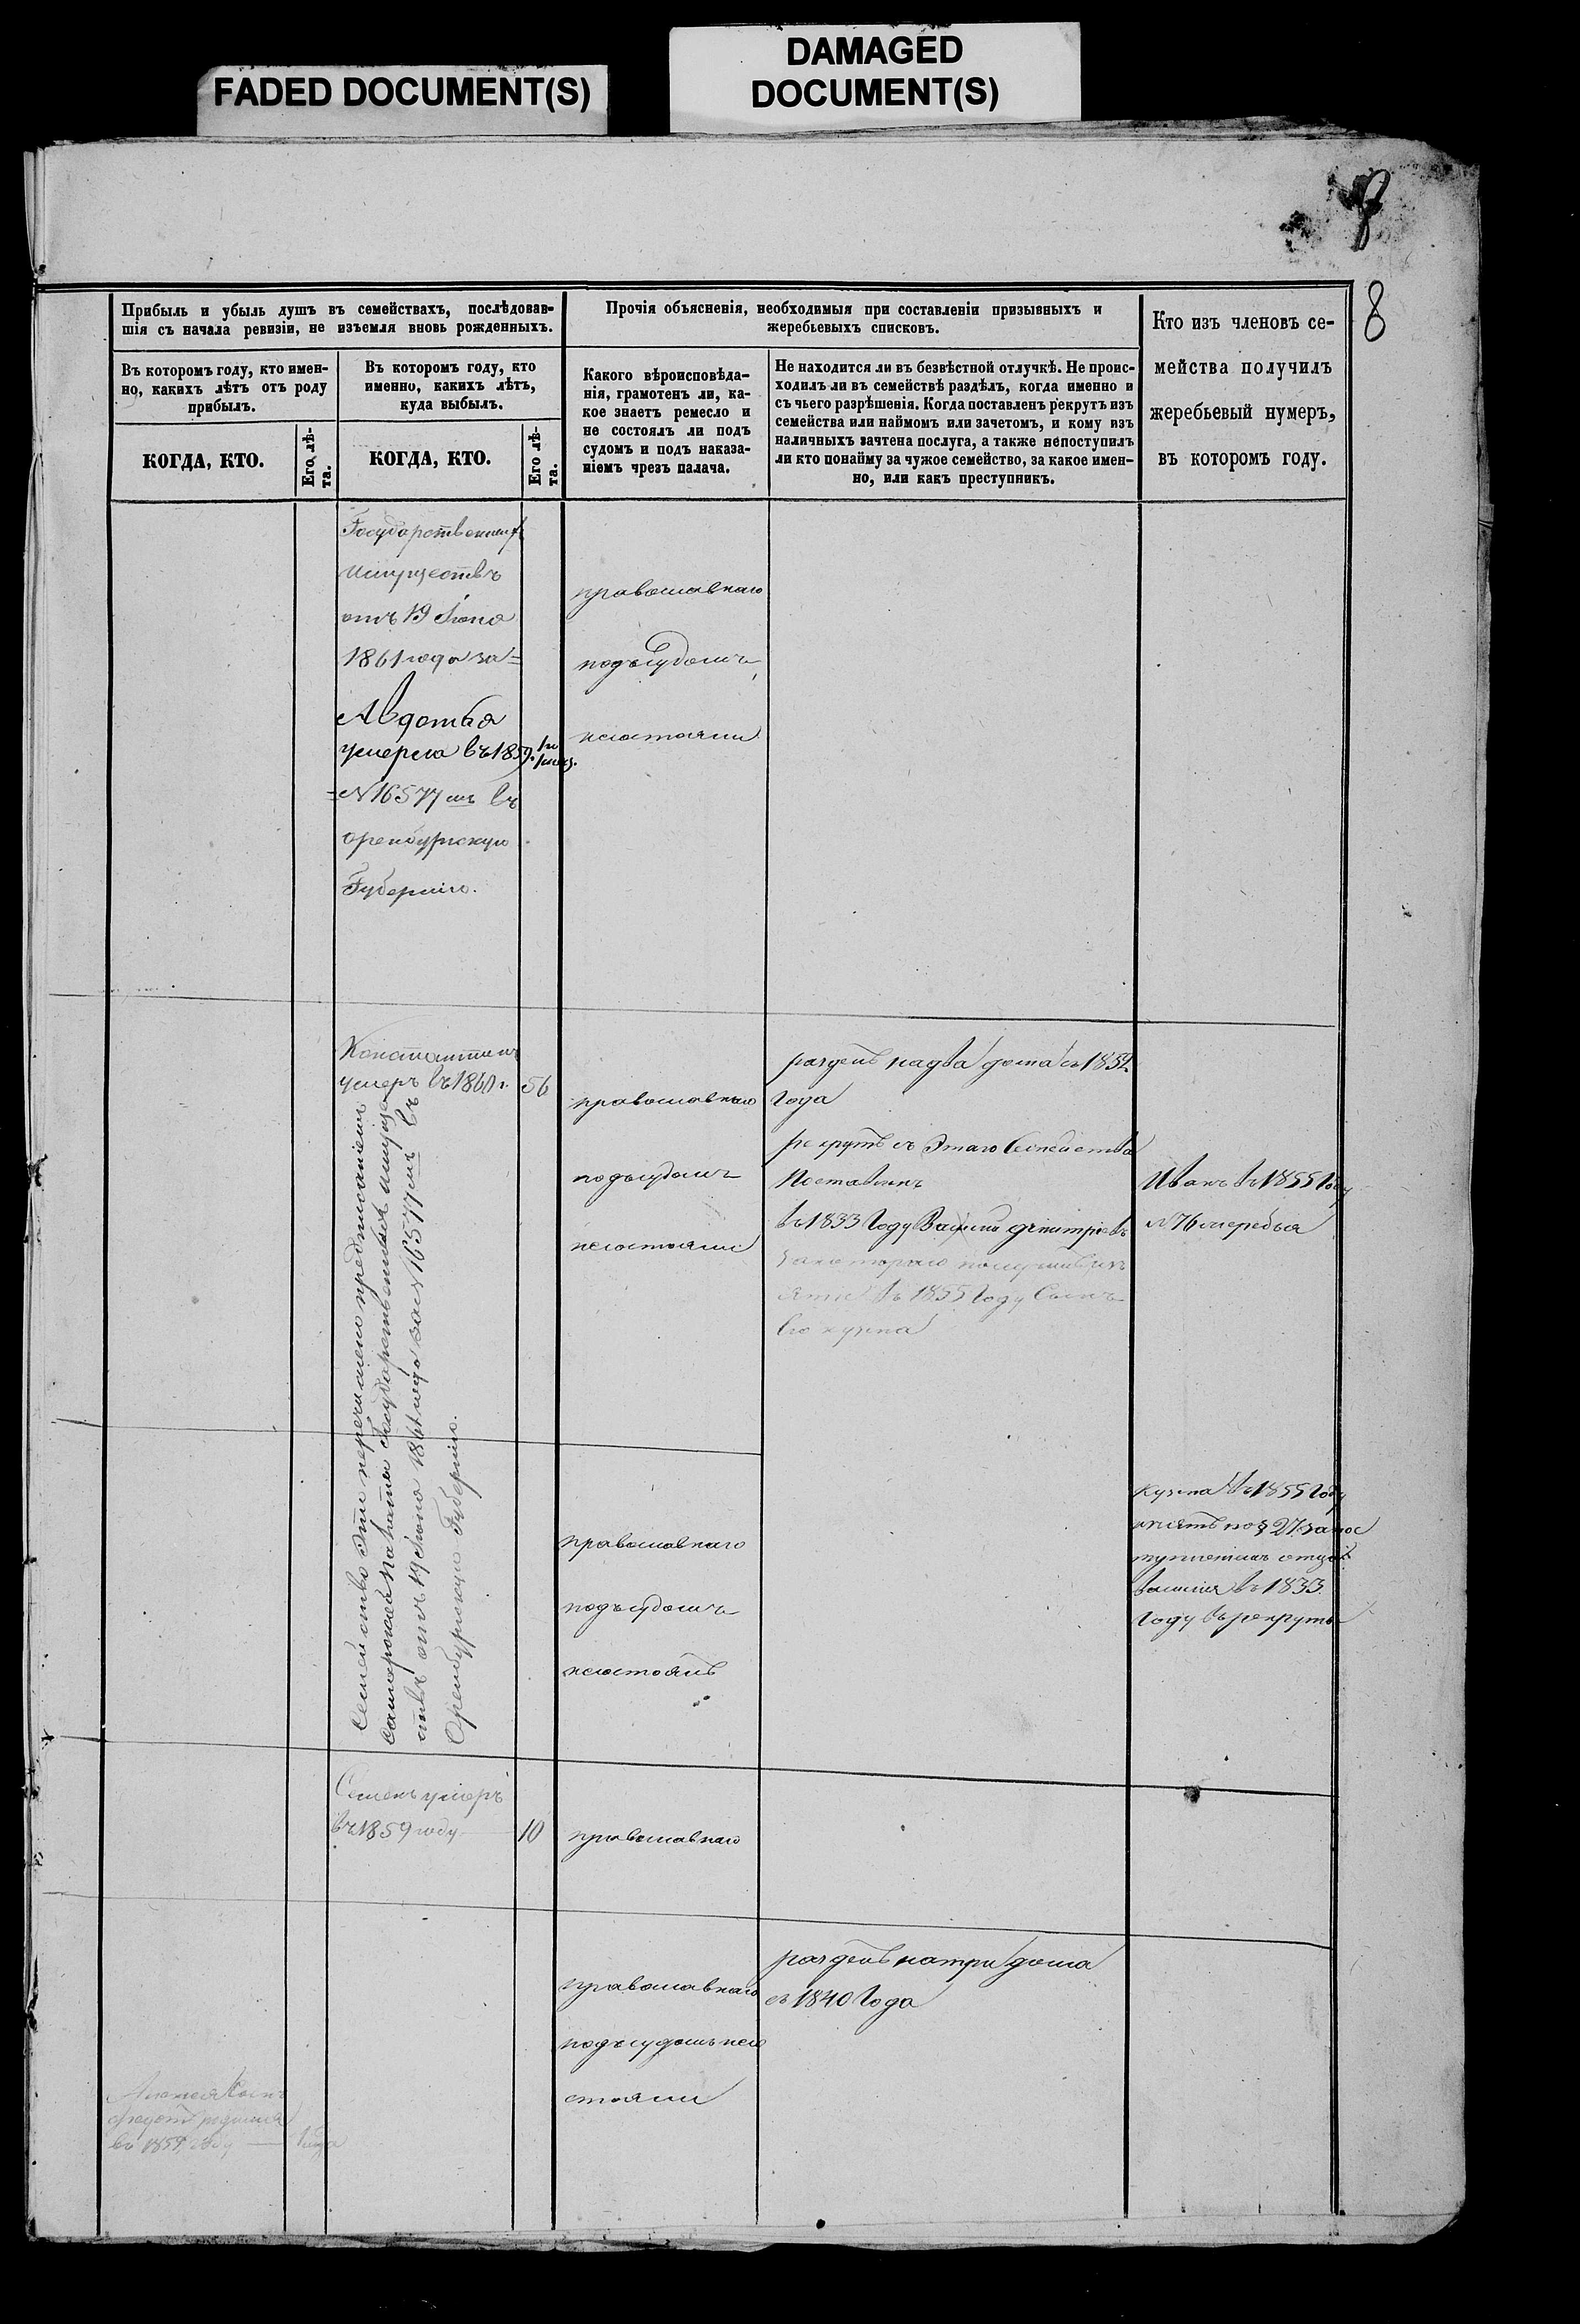 FADED DOCUMENT(S)
DAMAGED
DOCUMENT(S)
8
8
Прибыль и убыль душъ въ семействахъ, послѣдовав-
шія съ начала ревизіи, не изъемля вновь рожденныхъ.
Въ которомъ году, кто имен-
но, какихъ лѣтъ отъ роду
прибылъ.
КОГДА, КТО.
Его лѣ-
та.
Въ которомъ году, кто
именно, какихъ лѣтъ,
куда выбылъ.
КОГДА, КТО.
Его лѣ-
та.
Прочія объясненія, необходимыя при составленіи призывныхъ и
жеребьевыхъ списковъ.
Какого вѣроисповѣда-
нія, грамотенъ ли, ка-
кое знаетъ ремесло и
не состоялъ ли подъ
судомъ и подъ наказа-
ніемъ чрезъ палача.
Не находится ли въ безвѣстной отлучкѣ. Не проис-
ходилъ ли въ семействѣ раздѣлъ, когда именно и
съ чьего разрѣшенія. Когда поставленъ рекрутъ изъ
семейства или наймомъ или зачетомъ, и кому изъ
наличныхъ зачтена послуга, а также непоступилъ
ли кто понайму за чужое семейство, за какое имен-
но, или какъ преступникъ.
Кто изъ членовъ се-
мейства получилъ
жеребьевый нумеръ,
въ которомъ году.
Государственныхъ
Имуществъ
отъ 19 Июня
1861 года за=
Авдотья
умерла въ 1859.
=№ 16577 мъ въ
Оренбургскую
Губернию.
православнаго
подъсудомъ
несостояли
Константинъ
умеръ въ 1860 г. 56
Семейство это перечислено предписаніемъ
Самарской Палаты Государственныхъ имуще
ствъ отъ 19 Июня 1861 года за № 16577 мъ въ
Оренбургскую Губернию.
православнаго
подъсудомъ
несостояли
разделъ надва дома съ 1852
Года
рекрутъ съ Этаго Семейства
Поставленъ
въ 1833 Году Василий дмитриевъ
въ 1855 Году Сынъ
Его кузма
Иванъ въ 1855 Году
№ 76 жеребья
православнаго
подъсудомъ
несостоялъ
Кузма въ 1855 Году
по § 27 запос
туплениемъ отца
василия въ 1833
Году в рекруты
Семенъ умеръ
въ 1859 году 10
православнаго
православнаго
подъсудомъ несо
стояли
разделъ натри дома
съ 1840 Года
сынъ
родился
въ 1859 году